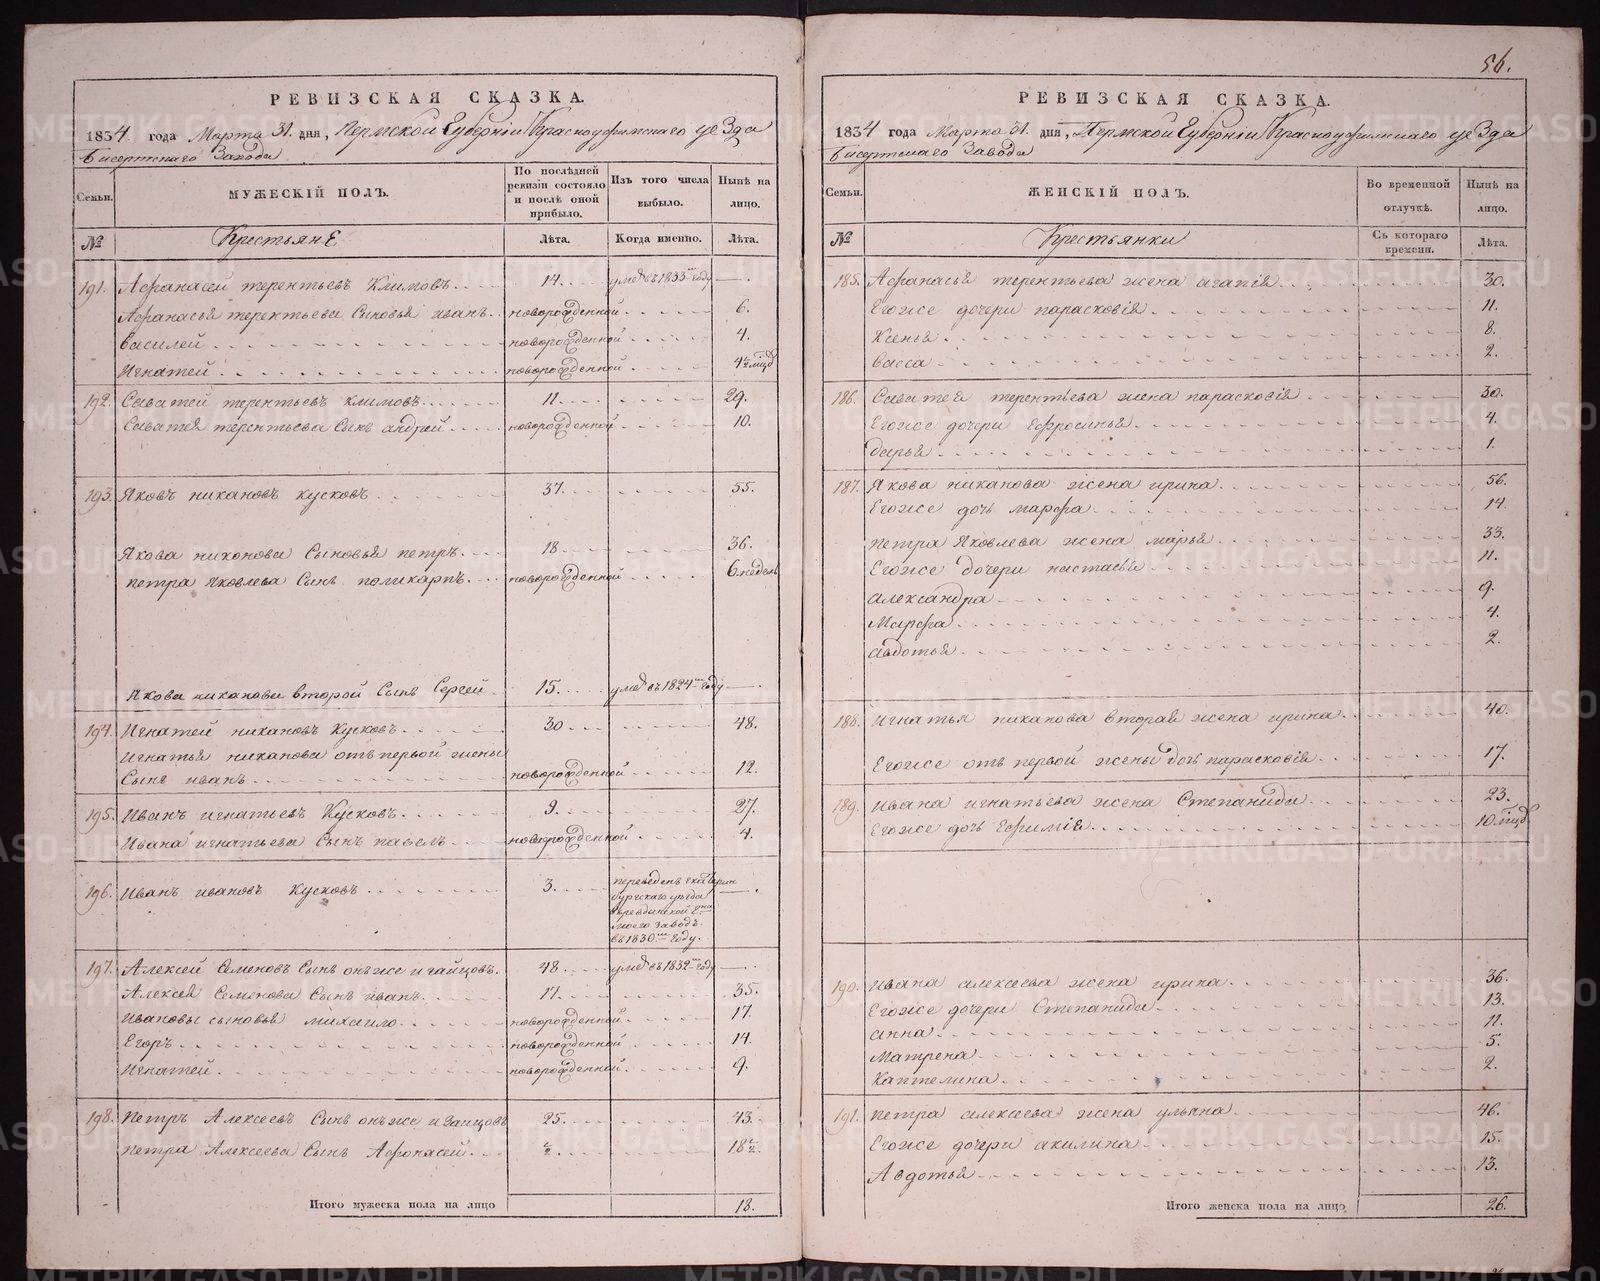 56.
РЕВИЗСКАЯ СКАЗКА.
1834 года Марта 31. дня, Пермской Губерніи Красноуфимскаго уезда
Бисертскаго Завода
Семьи.
МУЖЕСКІЙ ПОЛЪ.
По послѣдней ревизіи состояло и послѣ оной прибыло.
Изъ того числа выбыло.
Нынѣ на лицо.
№
Крестьяне
Лѣта.
Когда именно.
Лѣта.
191. Афанасей терентьевъ Климовъ 14. умеръ въ 1833 году
Афанасья терентьева Сыновья иванъ новорожденной 6.
василей новорожденной 4.
Игнатей новорожденной 4½ мцд
192. Саватей терентьевъ климовъ 11. 29.
Саватея терентьева Сынъ андрей новорожденной 10.
193. Яковъ никановъ кусковъ 37. 55.
Якова никонова Сыновья петръ 18. 36.
петра яковлева Сынъ поликарпъ новорожденной 6 недель
Якова никанова второй Сынъ Сергей 15. умеръ въ 1824 году
194. Игнатей никановъ Кусковъ 30. 48.
Игнатья никанова отъ первой жены
Сынъ иванъ новорожденной 12.
195. Иванъ игнатьевъ Кусковъ 9. 27.
Ивана игнатьева Сынъ павелъ новорожденной 4.
196. Иванъ ивановъ Кусковъ 3. переведенъ екатерин
бургскаго уезда
въ 1830 году.
197. Алексей Семеновъ Сынъ онъже и зайцовъ 48. умеръ въ 1832 году
Алексея Семенова Сынъ иванъ 17. 35.
Ивановы сыновья михаило новорожденной 17.
Егоръ новорожденной 14.
Игнатей новорожденной 9.
198. Петръ Алексеевъ Сынъ онъже и Заицовъ 25. 43.
петра Алексеева Сынъ Афонасей ½ 18½.
Итого мужеска пола на лицо 18.
РЕВИЗСКАЯ СКАЗКА.
1834 года Марта 31. дня, Пермской Губерніи Красноуфимскаго уезда
Бисертскаго Завода
Семьи.
ЖЕНСКІЙ ПОЛЪ.
Во временной отлучкѣ.
Нынѣ на лицо.
№
Крестьянки
Съ котораго времени.
Лѣта.
185. Афанасья терентьева жена агапія 30.
Егоже дочери парасковія 11.
Ксенья 8.
васса 2.
186. Саватея терентьева жена парасковія 30.
Егоже дочери Ефросинья 4.
дарья 1.
187. Якова никанова жена ирина 56.
Егоже дочь марфа 14.
петра Яковлева жена марья 33.
Егоже дочери настасья 11.
александра 9.
Марфа 4.
авдотья 2.
188. Игнатья никанова вторая жена ирина 40.
Егоже отъ первой жены дочь парасковія 17.
189. Ивана игнатьева жена Степанида 23.
Егоже дочь Ефимія 10 мцд
190. Ивана алексеева жена ирина 36.
Егоже дочери Степанида 13.
анна 11.
Матрена 5.
Каптелина 2.
191. петра алексеева жена ульяна 46.
Егоже дочери акилина 15.
Авдотья 13.
Итого женска пола на лицо 26.
METRIKI.GASO-URAL.RU